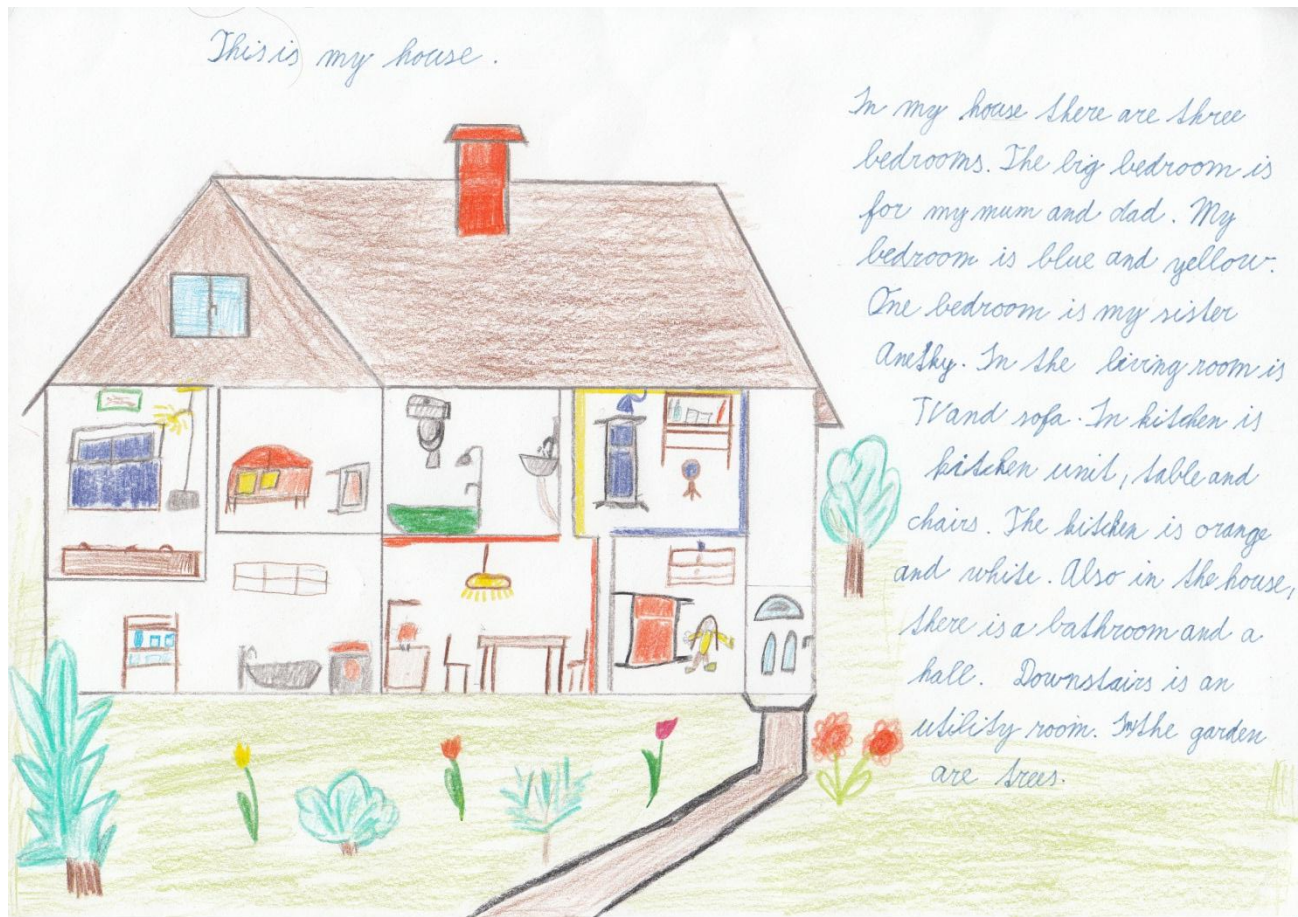 This is my house.
In my house there are three
bedrooms. The big bedroom is
for my mum and dad. My
bedroom is blue and yellow.
One bedroom is my sister
Anetky. In the living room is
TV and sofa. In kitchen is
kitchen unit, table and
chairs. The kitchen is orange
and white. Also in the house,
there is a bathroom and a
hall. Downstairs is an
utility room. In the garden
are trees.